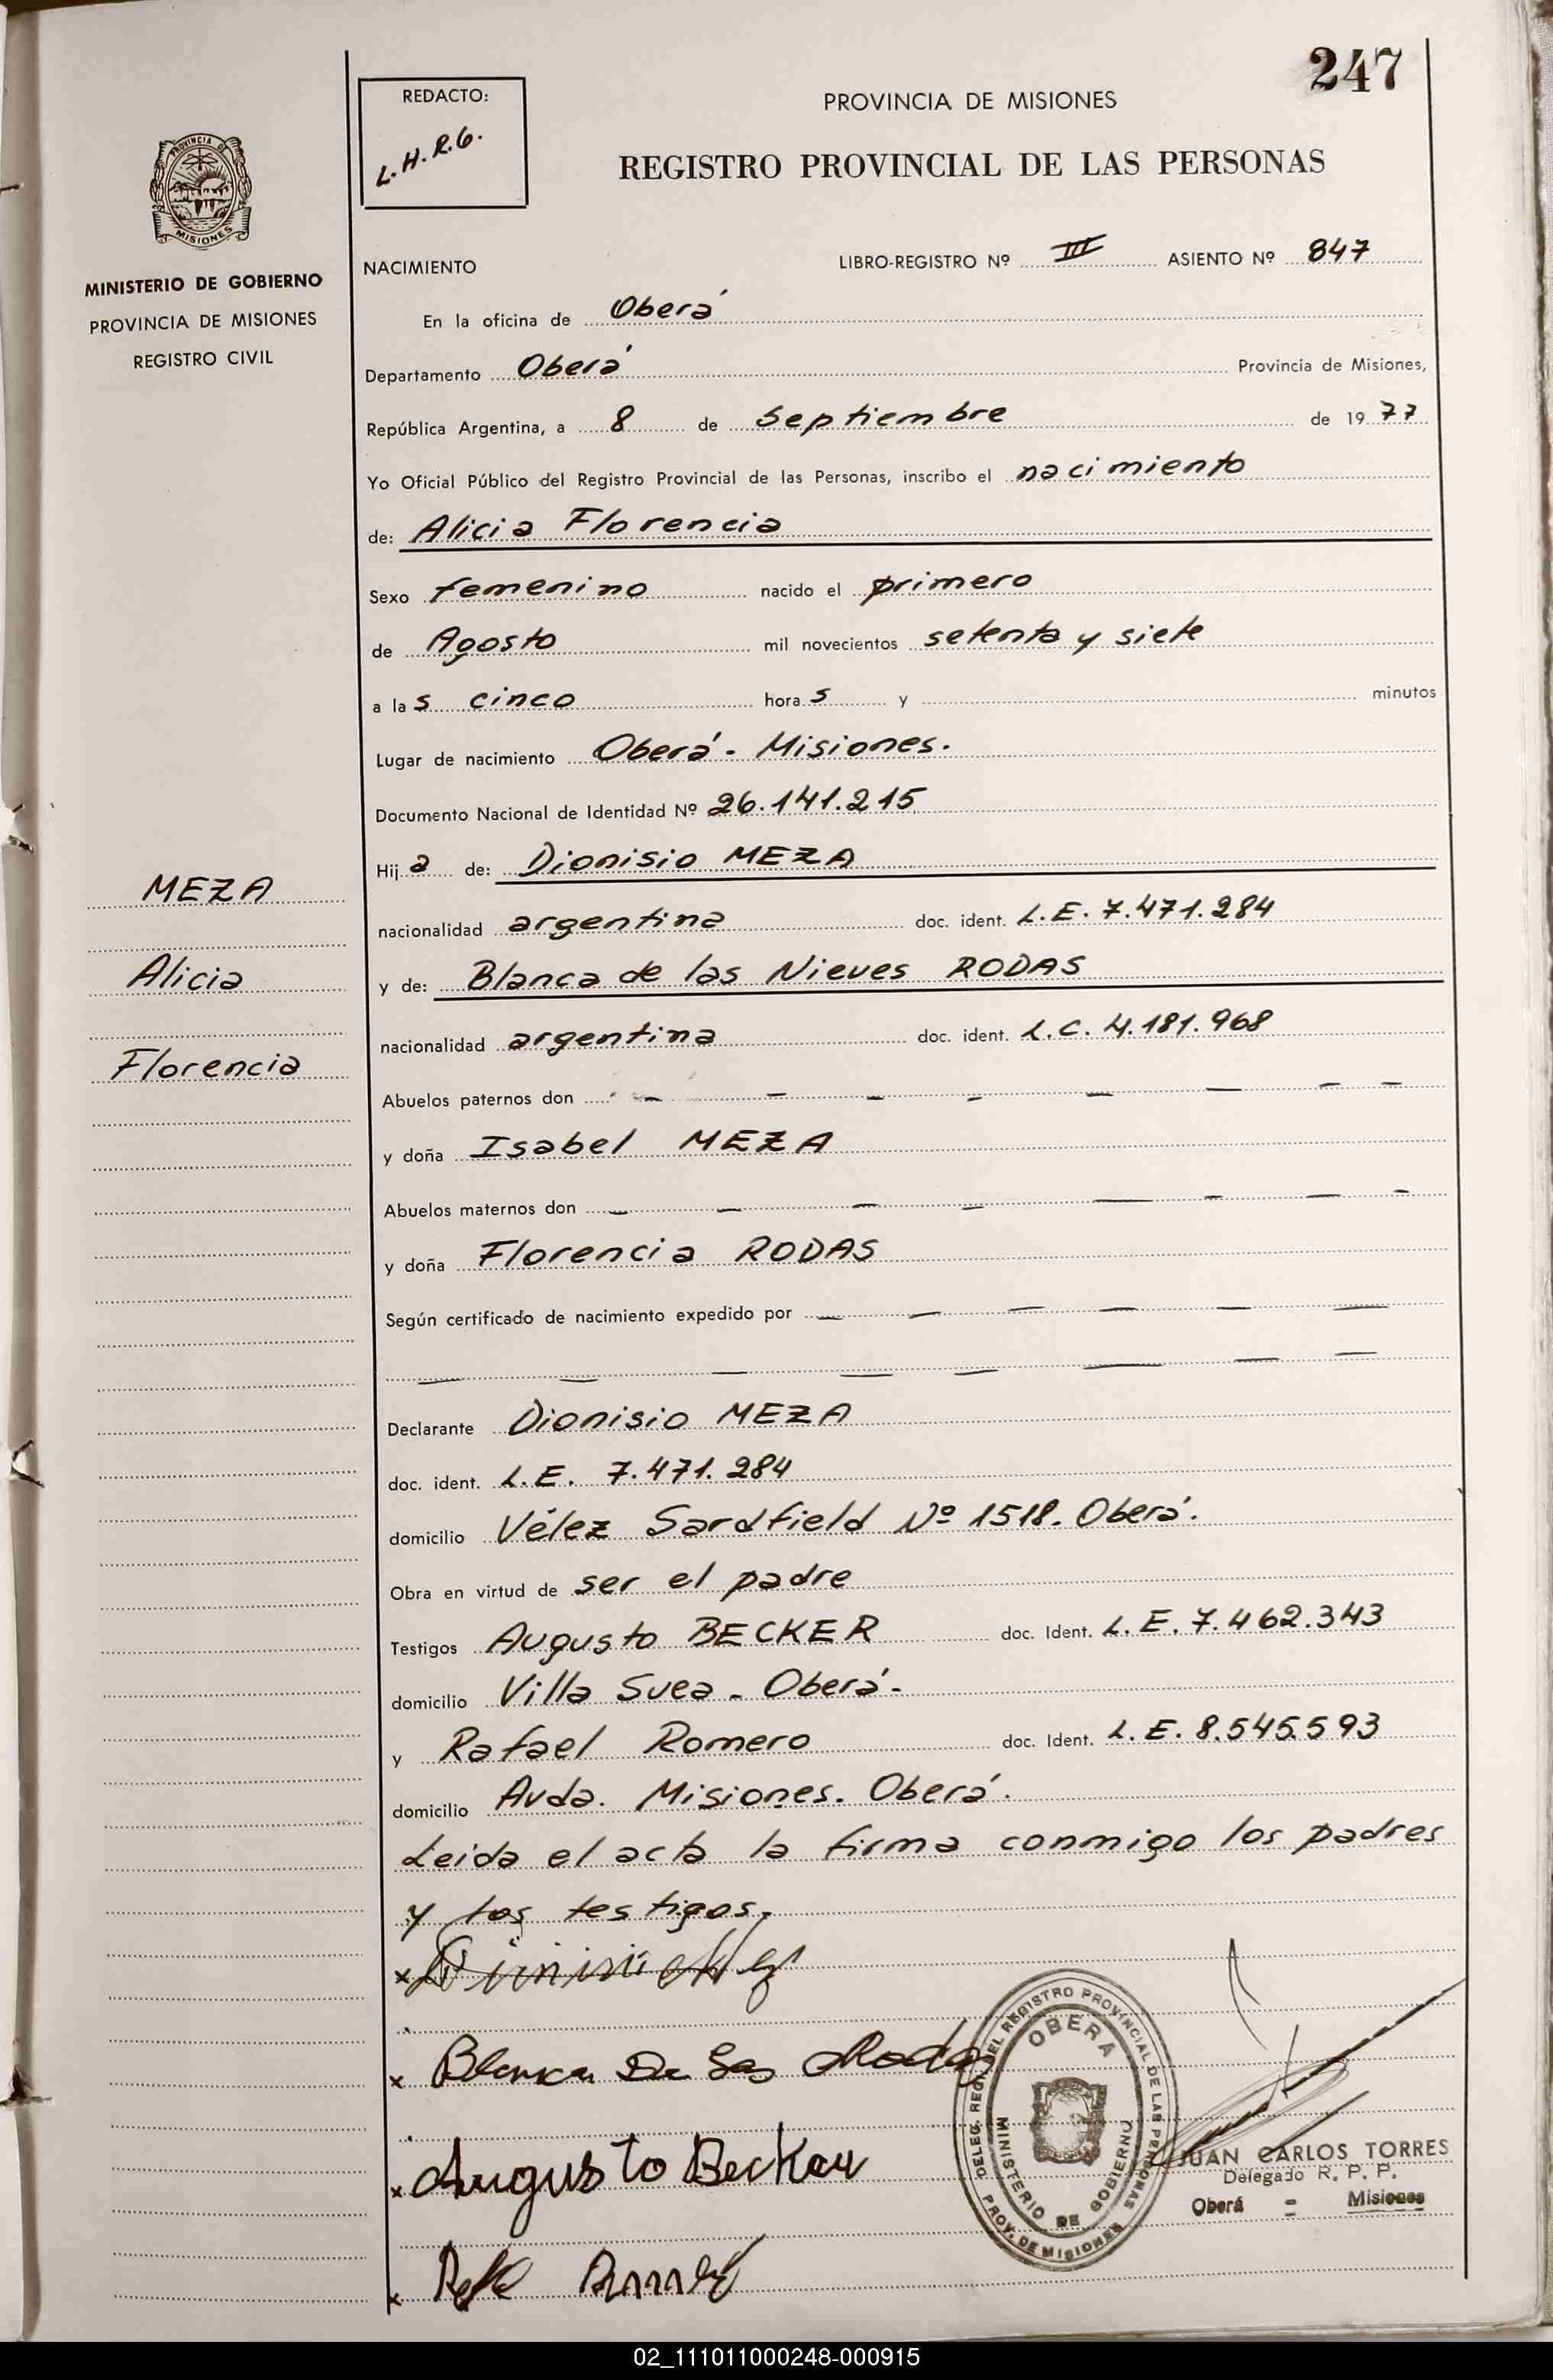 247
REDACTO:
L.H.R.G.
PROVINCIA DE MISIONES
REGISTRO PROVINCIAL DE LAS PERSONAS
PROVINCIA DE
MISIONES
MINISTERIO DE GOBIERNO
PROVINCIA DE MISIONES
REGISTRO CIVIL
NACIMIENTO LIBRO-REGISTRO Nº III ASIENTO Nº 847
En la oficina de Oberá
Departamento Oberá Provincia de Misiones,
República Argentina, a 8 de Septiembre de 1977
Yo Oficial Público del Registro Provincial de las Personas, inscribo el nacimiento
de: Alicia Florencia
Sexo femenino nacido el primero
de Agosto mil novecientos setenta y siete
a las cinco horas y minutos
Lugar de nacimiento Oberá - Misiones.
Documento Nacional de Identidad Nº 26.141.215
Hija de: Dionisio MEZA
MEZA
nacionalidad argentina doc. ident. L.E. 7.471.284
Alicia
y de: Blanca de las Nieves RODAS
nacionalidad argentina doc. ident. L.C. 4.181.968
Florencia
Abuelos paternos don - - - - - - - -
y doña Isabel MEZA
Abuelos maternos don - - - - - - - -
y doña Florencia RODAS
Según certificado de nacimiento expedido por - - - - - -
- - - - - - - -
Declarante Dionisio MEZA
doc. ident. L.E. 7.471.284
domicilio Vélez Sardfield Nº 1518. Oberá.
Obra en virtud de ser el padre
Testigos Augusto BECKER doc. Ident. L.E. 7.462.343
domicilio Villa Suea - Oberá.
y Rafael Romero doc. Ident. L.E. 8.545.593
domicilio Avda. Misiones. Oberá.
Leida el acta la firma conmigo los padres
y los testigos.
x
x Blanca De Las Rodas
x Augusto Becker
x
DELEG. REG. DEL REGISTRO PROVINCIAL DE LAS PERSONAS
OBERA
MINISTERIO DE GOBIERNO
PROV. DE MISIONES
JUAN CARLOS TORRES
Delegado R. P. P.
Oberá - Misiones
02_111011000248-000915